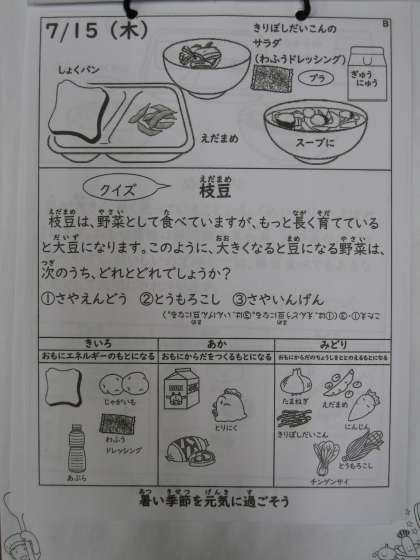 7/15（木）
B
きりぼしだいこんの
サラダ
（わふうドレッシング）
プラ
ぎゅう
にゅう
しょくパン
えだまめ
スープに
クイズ
枝豆
えだまめ
枝豆は、野菜として食べていますが、もっと長く育てている
えだまめ やさい た なが そだ
と大豆になります。このように、大きくなると豆になる野菜は、
だいず おお まめ やさい
次のうち、どれとどれでしょうか？
つぎ
①さやえんどう ②とうもろこし ③さやいんげん
きいろ
おもにエネルギーのもとになる
じゃがいも
わふう
ドレッシング
あぶら
あか
おもにからだをつくるもとになる
とりにく
みどり
おもにからだのちょうしをととのえるもとになる
たまねぎ
えだまめ
きりぼしだいこん
にんじん
とうもろこし
チンゲンサイ
暑い季節を元気に過ごそう
あつ きせつ げんき す